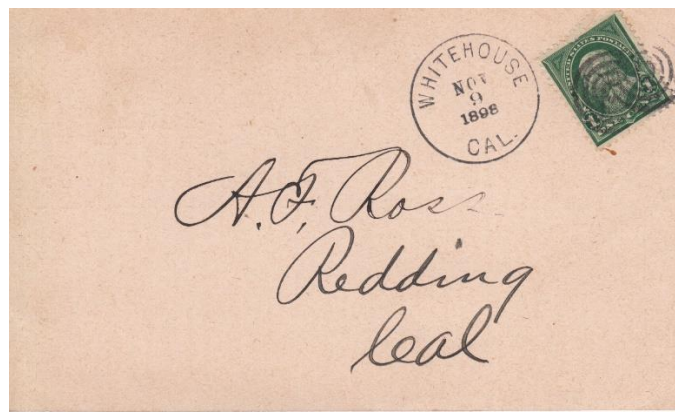 WHITEHOUSE
NOV
9
1898
CAL.
UNITED STATES POSTAGE
A. F. Ross
Redding
Cal